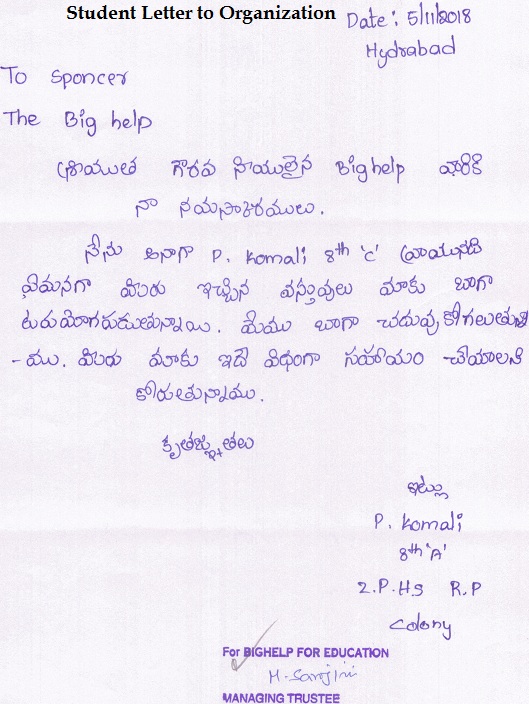 Student Letter to Organization
Date: 5/11/2018
Hydrabad
To Sponcer
The Big help
శ్రీయుత గౌరవ నీయులైన Big help వారికి
నా నమస్కారములు.
నేను అనగా P. Komali 8th 'C' వ్రాయునది
ఏమనగా మీరు ఇచ్చిన వస్తువులు మాకు బాగా
ఉపయోగపడుతున్నాయి. మేము బాగా చదువుకోగలుతున్
-ము. మీరు మాకు ఇదే విధంగా సహాయం చేయాలని
కోరుతున్నాము.
కృతజ్ఞతలు
ఇట్లు
P. Komali
8th 'A'
Z.P.H.S R.P
Colony
For BIGHELP FOR EDUCATION
M. Sarojini
MANAGING TRUSTEE